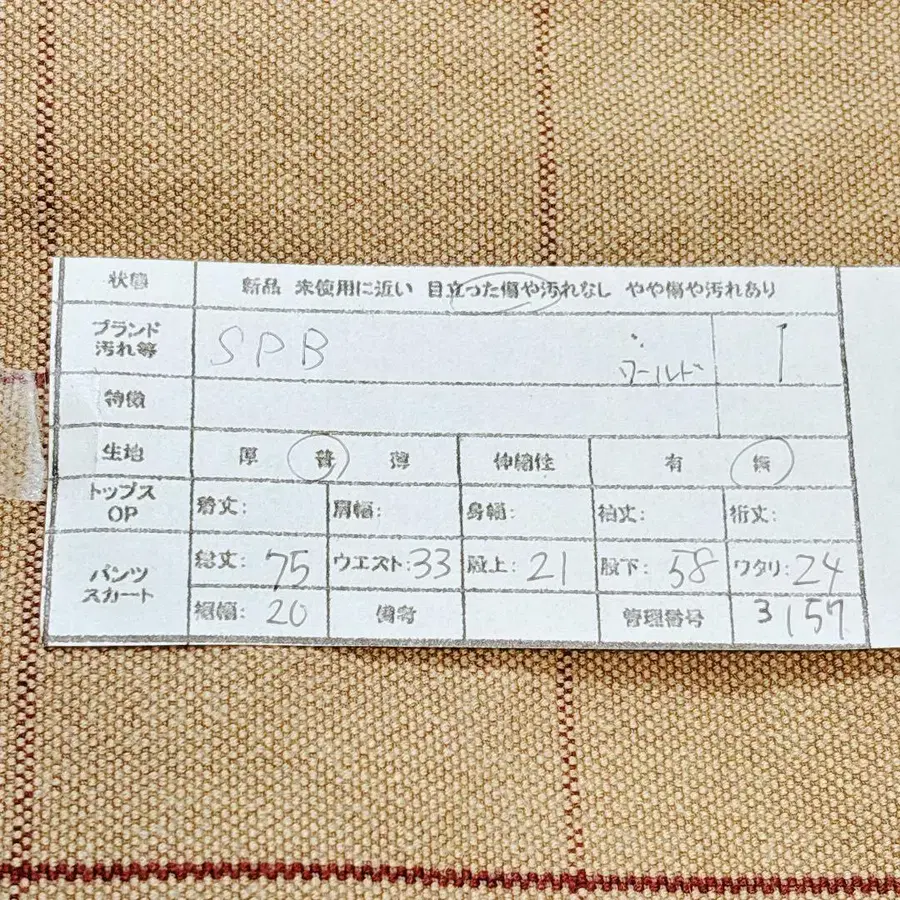 状態 新品 未使用に近い 目立った傷や汚れなし やや傷や汚れあり
ブランド
汚れ等 SPB ワールド 1
特徴
生地 厚 普 薄 伸縮性 有 無
トップス
OP 着丈: 肩幅: 身幅: 袖丈: 裄丈:
パンツ
スカート 総丈: 75 ウエスト: 33 股上: 21 股下: 58 ワタリ: 24
裾幅: 20 備考 管理番号 3157